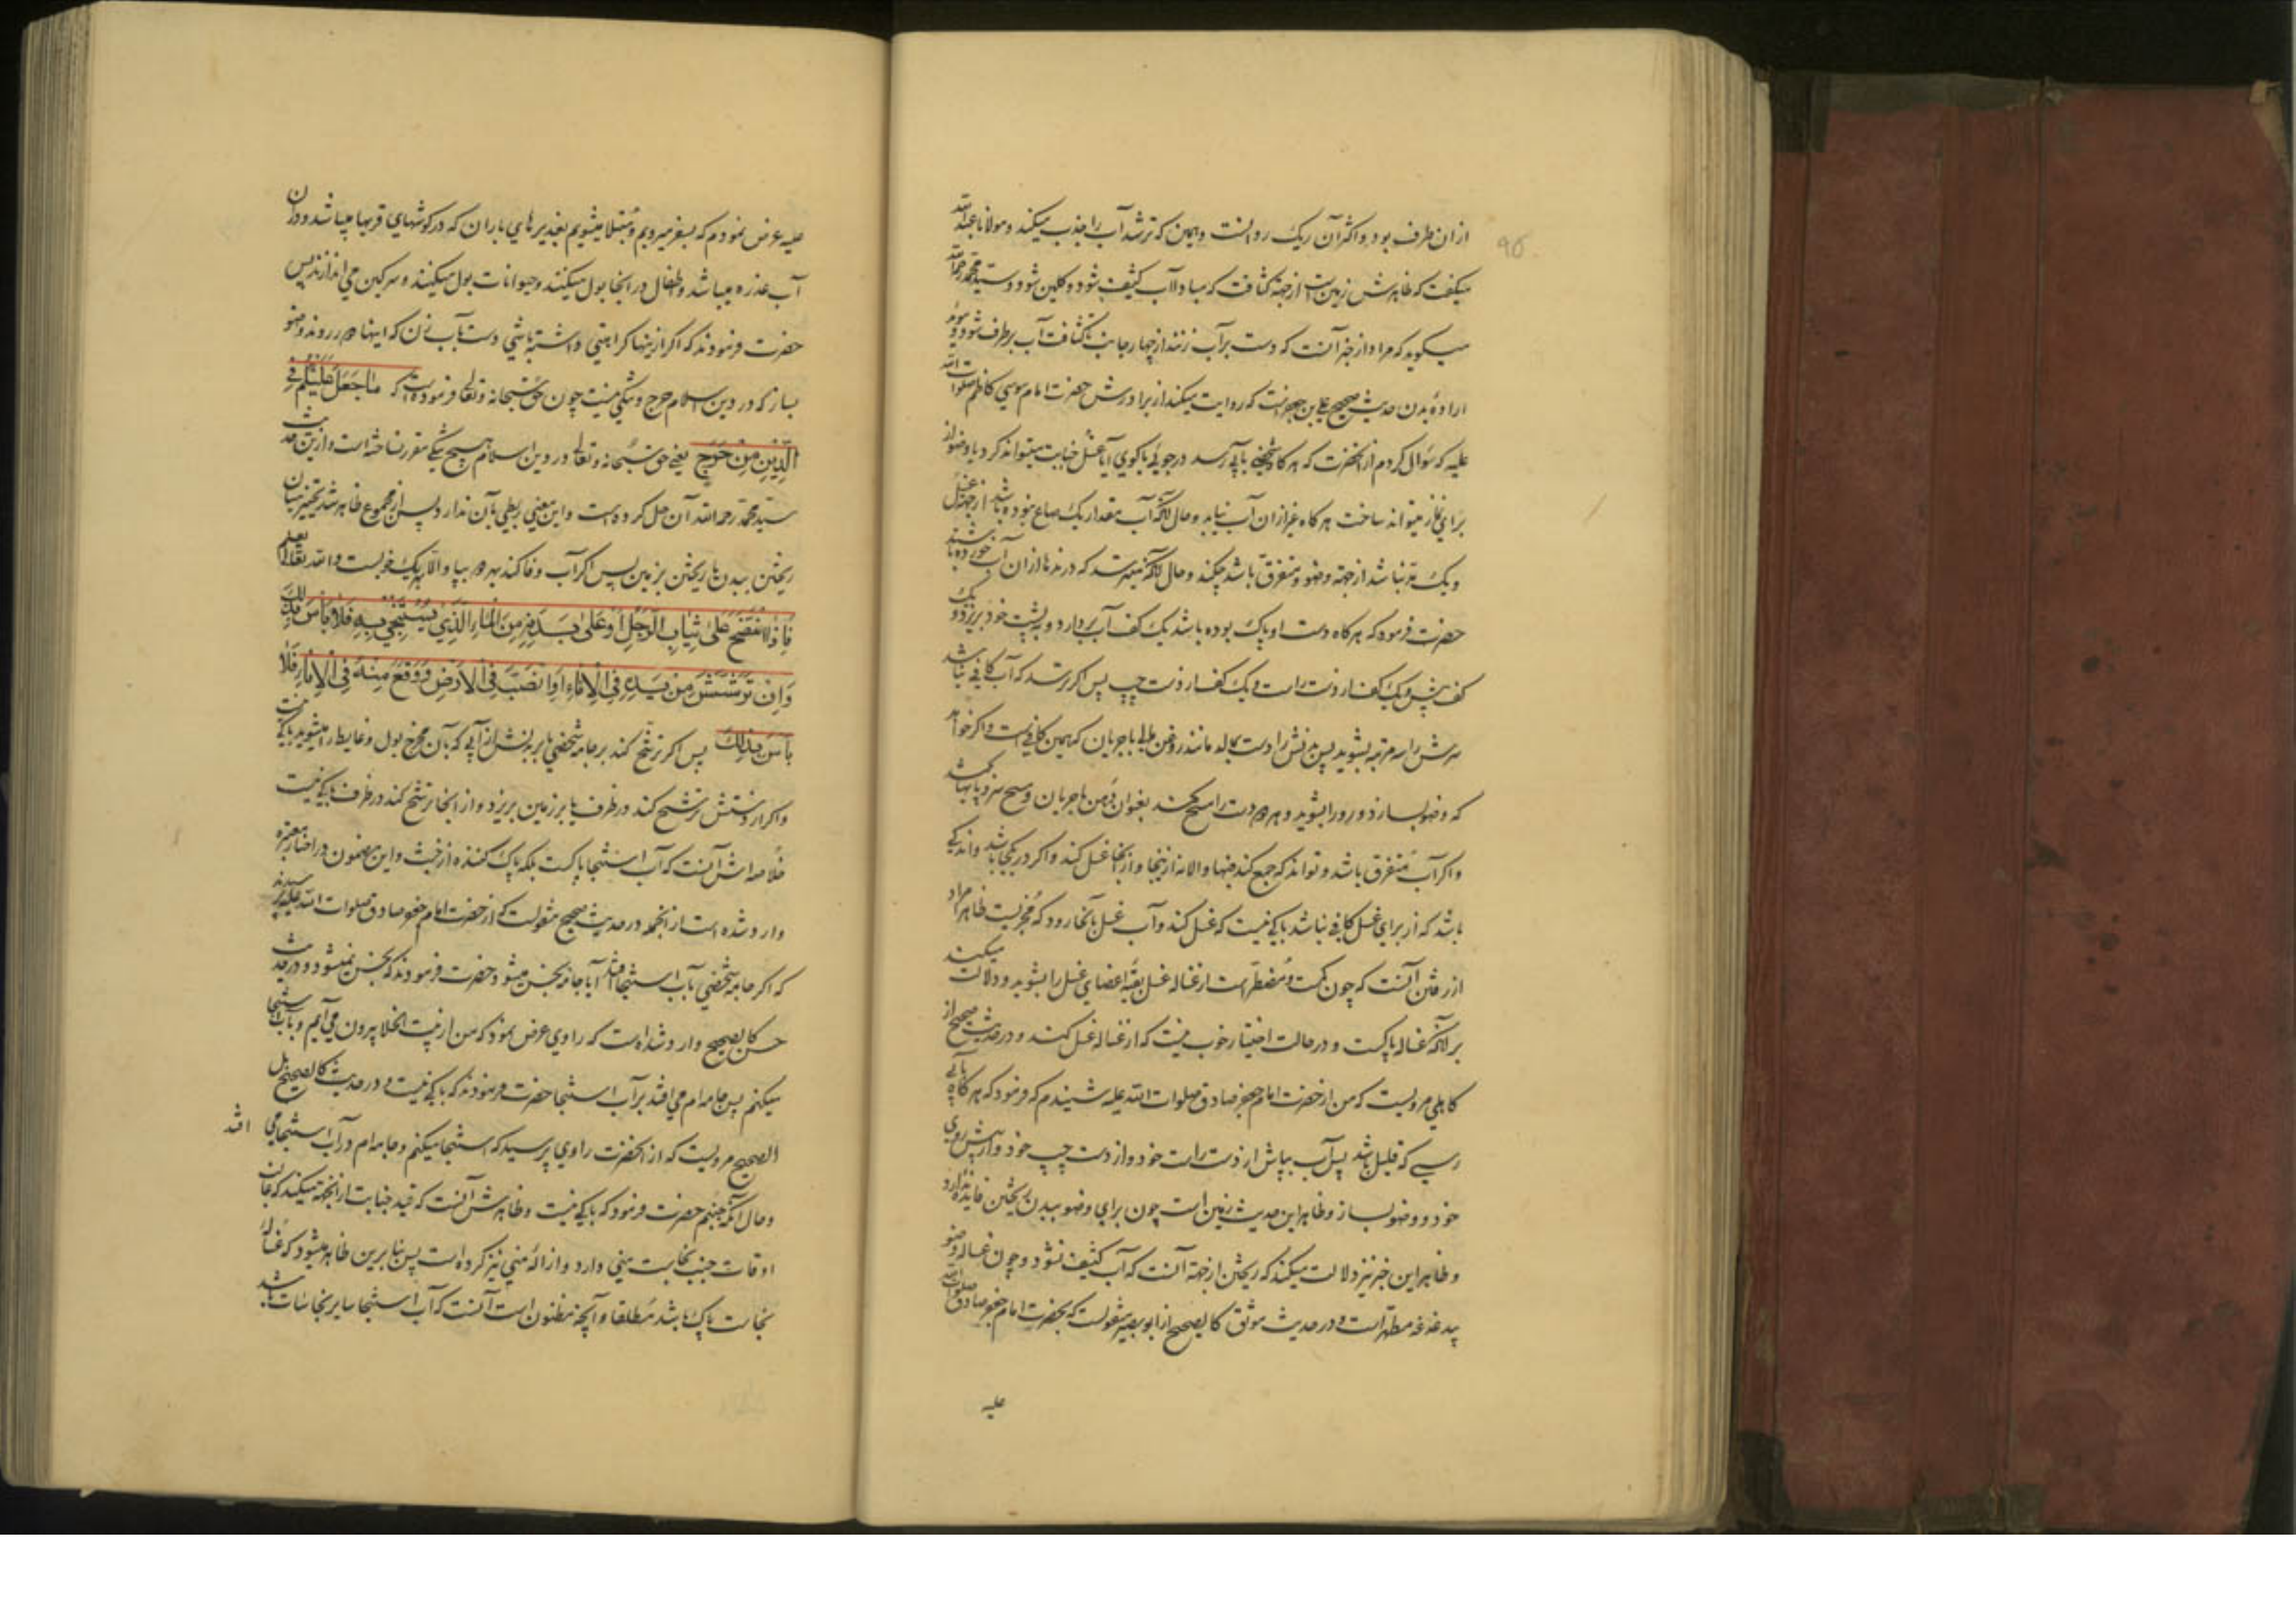 از ان طرف بود و اکثر آن ریک روانست و همین که ترشد آب را جذب میکند و مولانا عبد الله
میکفت که ظاهرش زمین است از جهة کثافت که مبادا آب کثیف شود و کلین شود و سید محمد رحمه الله
میکوید که مراد از خبر آنست که دست بر آب زنند از چهار جانب تا کثافت آب برطرف شود و مؤید
اراده بدن حدیث صحیح علی بن جعفر است که روایت میکند از برادرش حضرت امام موسی کاظم صلوات الله
علیه که سؤال کردم از انحضرت که هرکاه شخصی بآبی رسد در جوی یا کوی آیا غسل جنابت میتواند کرد یا وضو از
برای نماز میتواند ساخت هرکاه غیر از ان آب نیابد و حال آنکه آب مقدار یک صاع نبوده باشد از جهة غسل
و یک مد نباشد از جهة وضو و متفرق باشد چکند و حال آنکه میترسد که درندها از ان آب خورده باشند
حضرت فرمود که هرکاه دست او پاک بوده باشد یک کف آب بردارد و به پشت خود بریزد و یک
کف پیش و یک کف از دست راست و یک کف از دست چپ پس اکر ترسد که آب کافی نباشد
سرش را سه مرتبه بشوید پس بدنش را دست بمالد مانند روغن مالی با جریان که همین کافیست و اکر خواهد
که وضو بسازد و رو را بشوید و هر دو دست را مسح کند بعنوان دهن با جریان و مسح سر و پایها بکشد
و اکر آب متفرق باشد و تواند که جمع کند فبها و الا نه از اینجا و از انجا غسل کند و اکر در یکجا باشد و اندکی
باشد که از برای غسل کافی نباشد باکی نیست که غسل کند و آب غسل بآنجا رود که مجزیست ظاهرا مراد
از رفتن آنست که چون کمست و مضطر است از غساله غسل بقیه اعضای غسل را بشوید و دلالت میکند
بر آنکه غساله پاکست و در حالت اختیار خوب نیست که از غساله غسل کند و در حدیث صحیح از
کاهلی مرویست که من از حضرت امام جعفر صادق صلوات الله علیه شنیدم که فرمود که هرکاه بآبی
رسی که قلیل باشد پس آب بپاش از دست راست خود و از دست چپ خود و از پیش روی
خود و وضو بساز و ظاهر این حدیث زمین است چون برای وضو ببدن ریختن فایده ندارد
و ظاهر این خبر نیز دلالت میکند که ریختن از جهة آنست که آب کثیف نشود و چون غساله وضو
بیدغدغه مطهر است و در حدیث موثق کالصحیح از ابو بصیر منقولست که بحضرت امام جعفر صادق صلوات الله
علیه
علیه عرض نمودم که بسفر میرویم و مبتلا میشویم بغدیرهای باران که در کوشهای قریها میباشد و در ان
آب عذره میباشد و اطفال در انجا بول میکنند و حیوانات بول میکنند و سرکین می اندازند پس
حضرت فرمودند که اکر از ینها کراهتی داشته باشی دست بآب زن که اینها دور روند و وضو
بساز که در دین اسلام حرج و تنکی نیست چون حق سبحانه و تعالی فرموده است که مَا جَعَلَ عَلَيْكُمْ فِي
الدِّينِ مِنْ حَرَجٍ یعنی حق سبحانه و تعالی در دین اسلام هیچ تنکی مقرر نساخته است و از ین حدیث
سید محمد رحمه الله آن حل کرده است و این معنی ربطی بآن ندارد پس از مجموع ظاهر شد تخییر میان
ریختن ببدن یا ریختن بزمین پس اکر آب وفا کند بهر دو بپا و الا بهر یک خوبست و الله تعالی یعلم
فَإِذَا نَضَحَ عَلَى ثِيَابِ الرَّجُلِ أَوْ عَلَى بَدَنِهِ مِنَ الْمَاءِ الَّذِي يَسْتَنْجِي بِهِ فَلَا بَأْسَ بِذَلِكَ
وَإِنْ تَرَشَّشَ مِنْ يَدِهِ فِي الْإِنَاءِ أَوِ انْصَبَّ فِي الْأَرْضِ فَوَقَعَ مِنْهُ فِي الْإِنَاءِ فَلَا
بَأْسَ بِذَلِكَ پس اکر ترشح کند بر جامه شخصی یا بر بدنش از آبی که بآن مخرج بول و غایط را میشوید باکی نیست
و اکر از دستش ترشح کند در ظرف یا بر زمین بریزد و از انجا ترشح کند در ظرف باکی نیست
خلاصه اش آنست که آب استنجا پاکست بلکه پاک کننده از خبث و این مضمون در اخبار معتبره
وارد شده است از انجمله در حدیث صحیح منقولست که از حضرت امام جعفر صادق صلوات الله علیه پرسیدند
که اکر جامه شخصی بآب استنجا افتد آیا جامه نجس میشود حضرت فرمودند که نجس نمیشود و در حدیث
حسن کالصحیح وارد شده است که راوی عرض نمود که من از بیت الخلا بیرون می آیم و بآب استنجا
میکنم پس جامه ام می افتد بر آب استنجا حضرت فرمودند که باکی نیست و در حدیث کالصحیح بل
الصحیح مرویست که از انحضرت راوی پرسید که استنجا میکنم و جامه ام در آب استنجا می افتد
و حال آنکه جنبم حضرت فرمود که باکی نیست و ظاهرش آنست که قید جنابت از انجهة میکند که غالب
اوقات جنب نجاست منی دارد و ازاله منی نیز کرده است پس بنا برین ظاهر میشود که غساله
نجاست پاک باشد مطلقا و آنچه مظنون است آنست که آب استنجا سایر نجاسات باشد